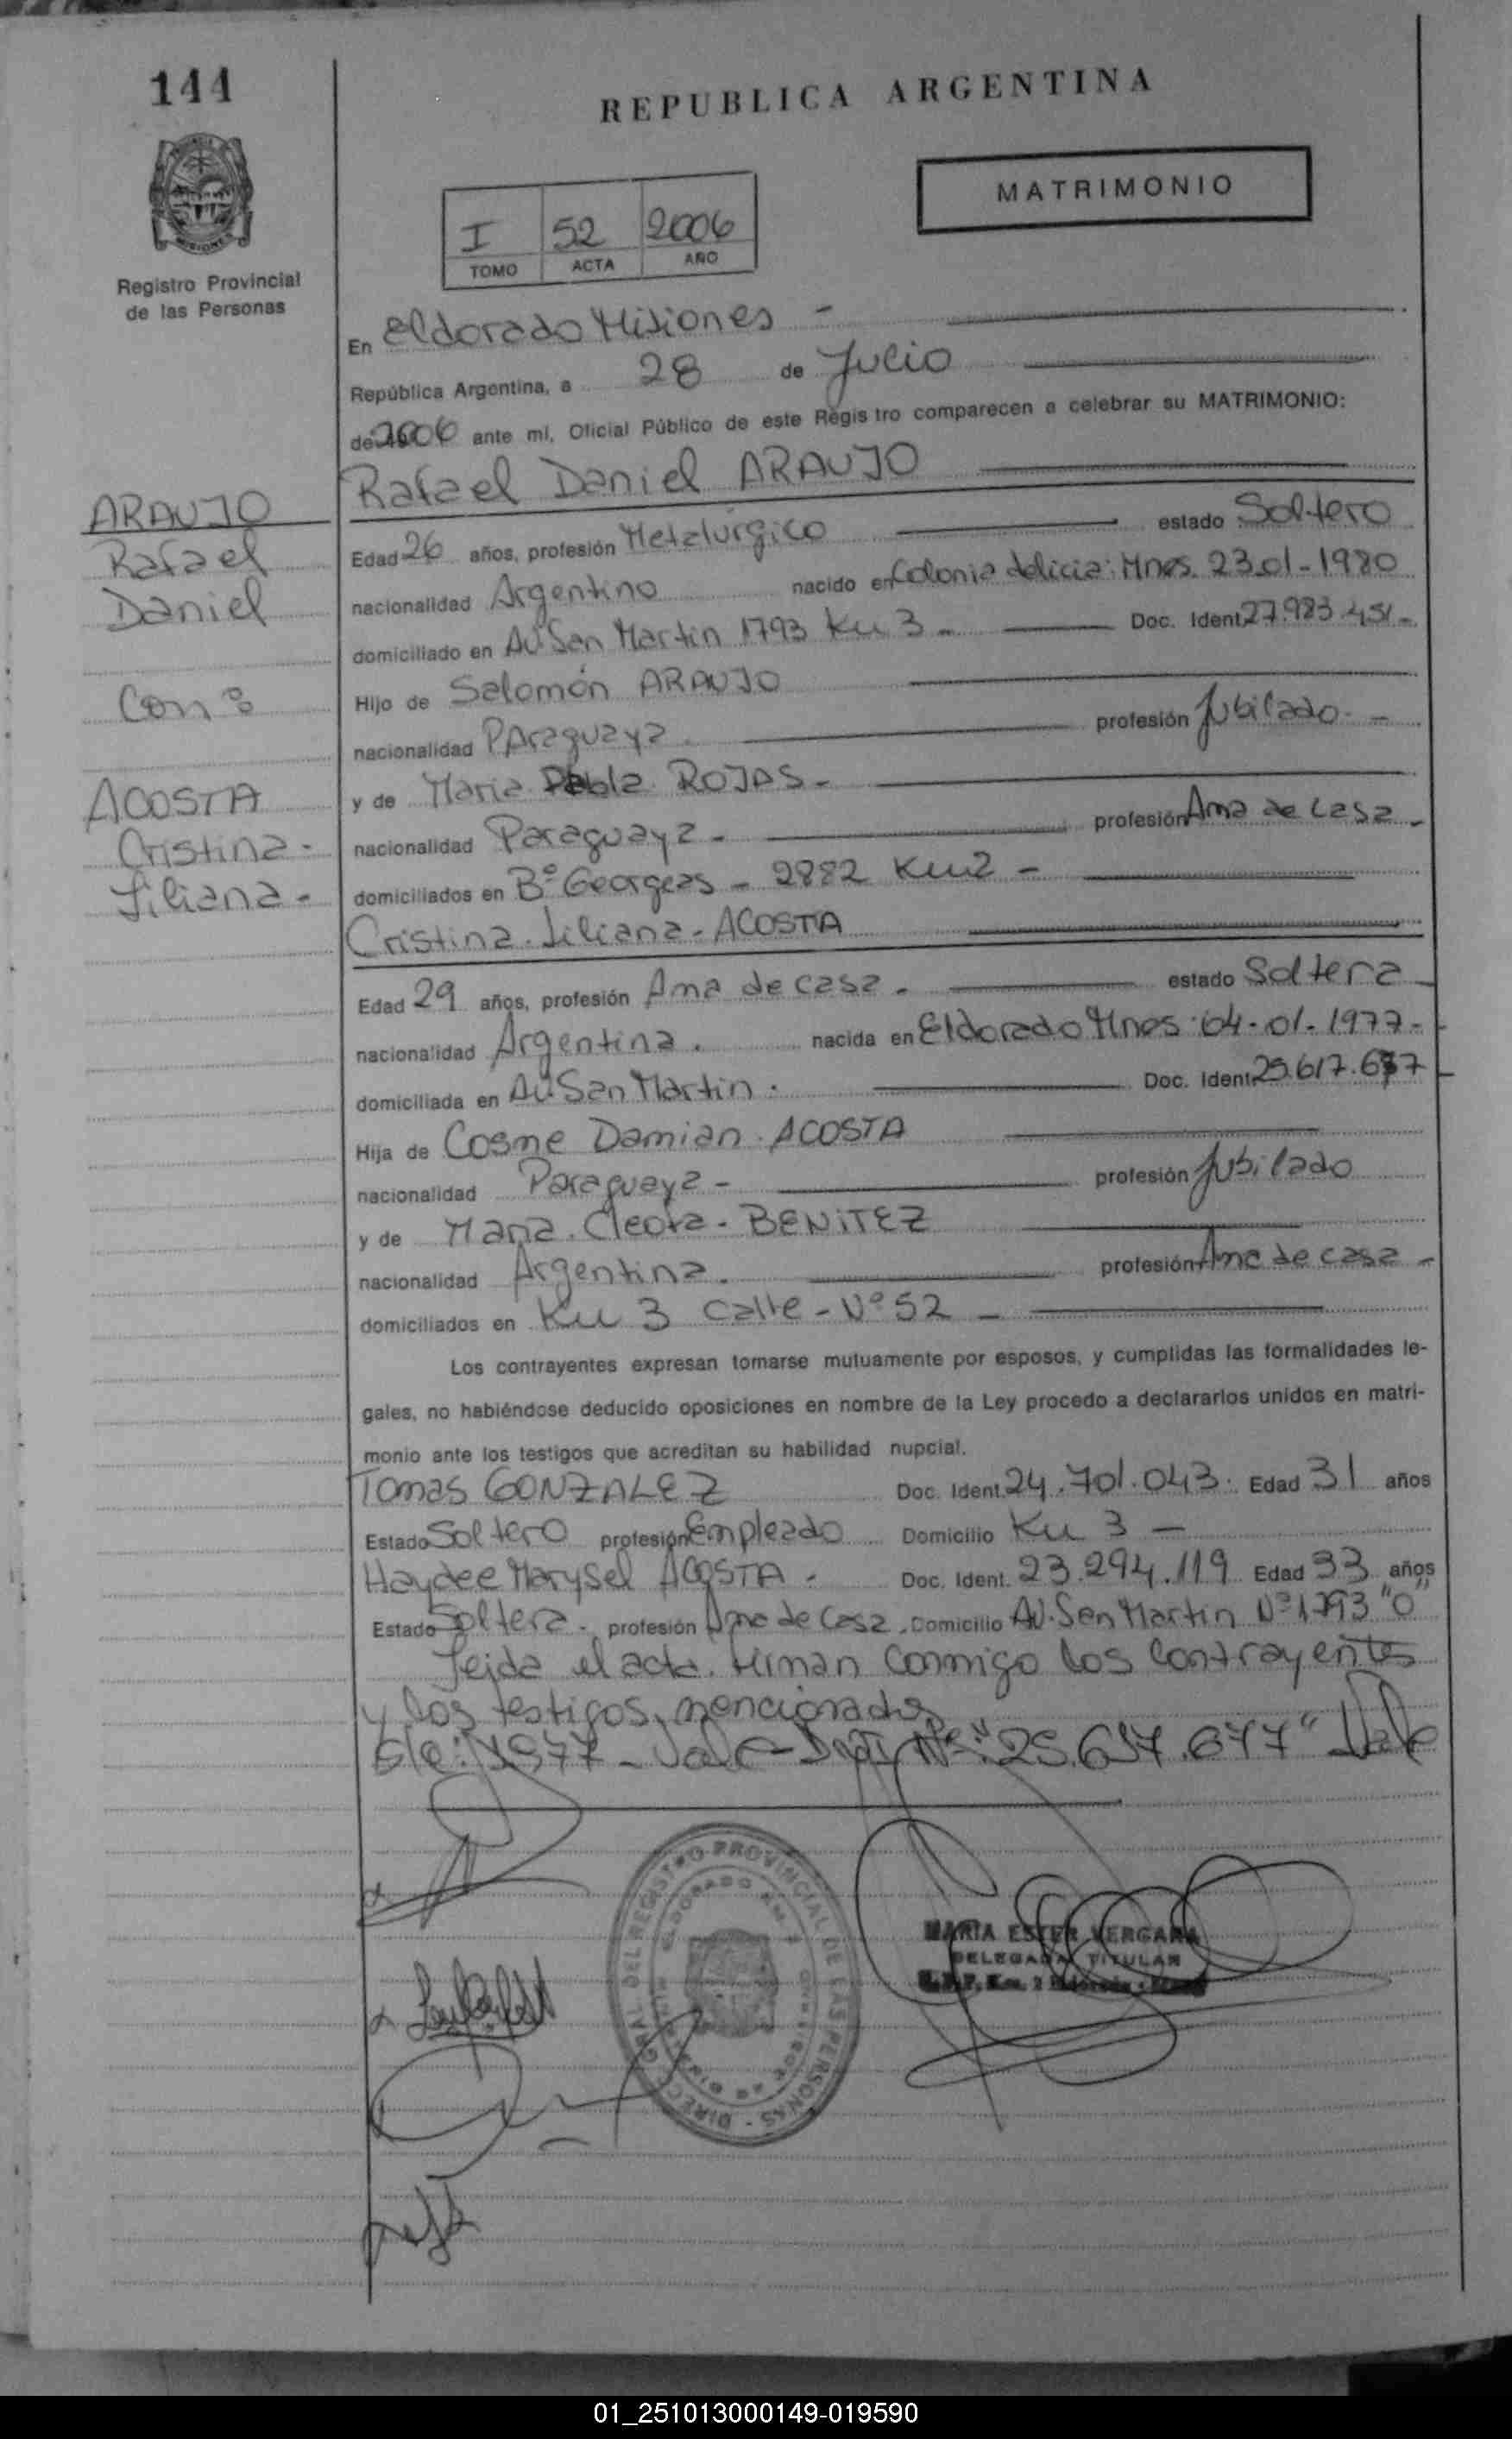 144
REPUBLICA ARGENTINA
MATRIMONIO
I 52 2006
TOMO ACTA AÑO
Registro Provincial
de las Personas
En Eldorado Misiones -
República Argentina, a 28 de Julio
de 2006 ante mí, Oficial Público de este Registro comparecen a celebrar su MATRIMONIO:
Rafael Daniel ARAUJO
ARAUJO
Rafael
Daniel
Con:
ACOSTA
Cristina -
Liliana -
Edad 26 años, profesión Metalúrgico estado Soltero
nacionalidad Argentino nacido en Colonia delicia: Mnes. 23.01-1980
domiciliado en Av. San Martin 1793 Km 3 - Doc. Ident. 27.983.451-
Hijo de Salomón ARAUJO
nacionalidad PAraguaya. profesión Jubilado. -
y de Maria Pabla ROJAS -
nacionalidad Paraguaya - profesión Ama de casa -
domiciliados en Bº Georgeas - 2882 Km2 -
Cristina. Liliana - ACOSTA
Edad 29 años, profesión Ama de casa. estado Soltera
nacionalidad Argentina. nacida en Eldorado Mnes. 04-01-1977-
domiciliada en Av. San Martin. Doc. Ident. 25.617.677
Hija de Cosme Damian. ACOSTA
nacionalidad Paraguaya - profesión Jubilado
y de Maria. Cleofa - BENITEZ
nacionalidad Argentina. profesión Ama de casa -
domiciliados en Km 3 Calle - Nº 52 -
Los contrayentes expresan tomarse mutuamente por esposos, y cumplidas las formalidades le-
gales, no habiéndose deducido oposiciones en nombre de la Ley procedo a declararlos unidos en matri-
monio ante los testigos que acreditan su habilidad nupcial.
Tomas GONZALEZ Doc. Ident. 24.701.043. Edad 31 años
Estado Soltero profesión Empleado Domicilio Km 3 -
Haydee Marysel ACOSTA. Doc. Ident. 23.294.119 Edad 33 años
Estado Soltera - profesión Ama de Casa. Domicilio Av. San Martin Nº 1793 "O"
Leida el acta. Firman Conmigo los Contrayentes
y los testigos mencionados
S/e: 1977 - Vale - Nº: "25.617.677" Vale
DIRECC. GRAL. DEL REGISTRO PROVINCIAL DE LAS PERSONAS
ELDORADO KM. 2
MARIA ESTER VERGARA
DELEGADA TITULAR
01_251013000149-019590